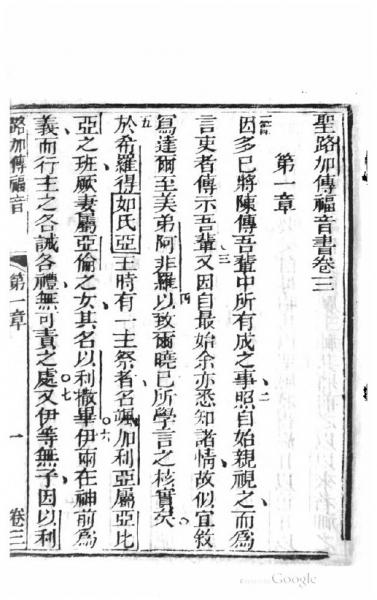 聖路加傳福音書卷三
第一章
一 因多已將陳傳吾輩中所有成之事照自始親視之而為
言吏者傳示吾輩又因自最始余亦悉知諸情故似宜敘
寫達爾至美弟阿非羅以致爾曉已所學言之核實矣
五 於希羅得如氏亞王時有一主祭者名颯加利亞屬亞比
亞之班厥妻屬亞倫之女其名以利撒畢伊爾在神前為
義而行主之各誡各禮無可責之處又伊等無子因以利
路加傳福音 第一章 一 卷三
Google